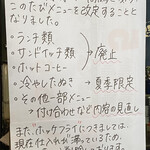 このたびメニューを改定することと
なりました。
・ランチ類
・サンドイッチ類
・ホットコーヒー
→廃止
・冷やしたぬき → 夏季限定
・その他一部メニュー
→付け合わせなど内容の見直し
また、ホッケフライにつきましては、
現在仕入れが滞っているため、